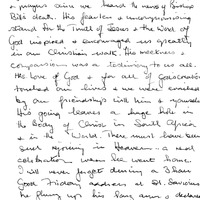 & prayers since we heard the news of Bishop
Bill's death. His fearless & uncompromising
stand for the Truth of Jesus & the Word of
God inspired & encouraged us greatly
in our Christian walk. His meekness &
compassion was a testimony to us all.
His love of God & for all of God's creation
touched our lives & we were enriched
by our friendships with him & yourself.
His going leaves a huge hole in
the Body of Christ in South Africa
& in the World. There must have been
such rejoicing in Heaven - a real
celebration when he went home.
I will never forget during a 3 hour
Good Friday address at St. Saviours
he flung up his arms & declared